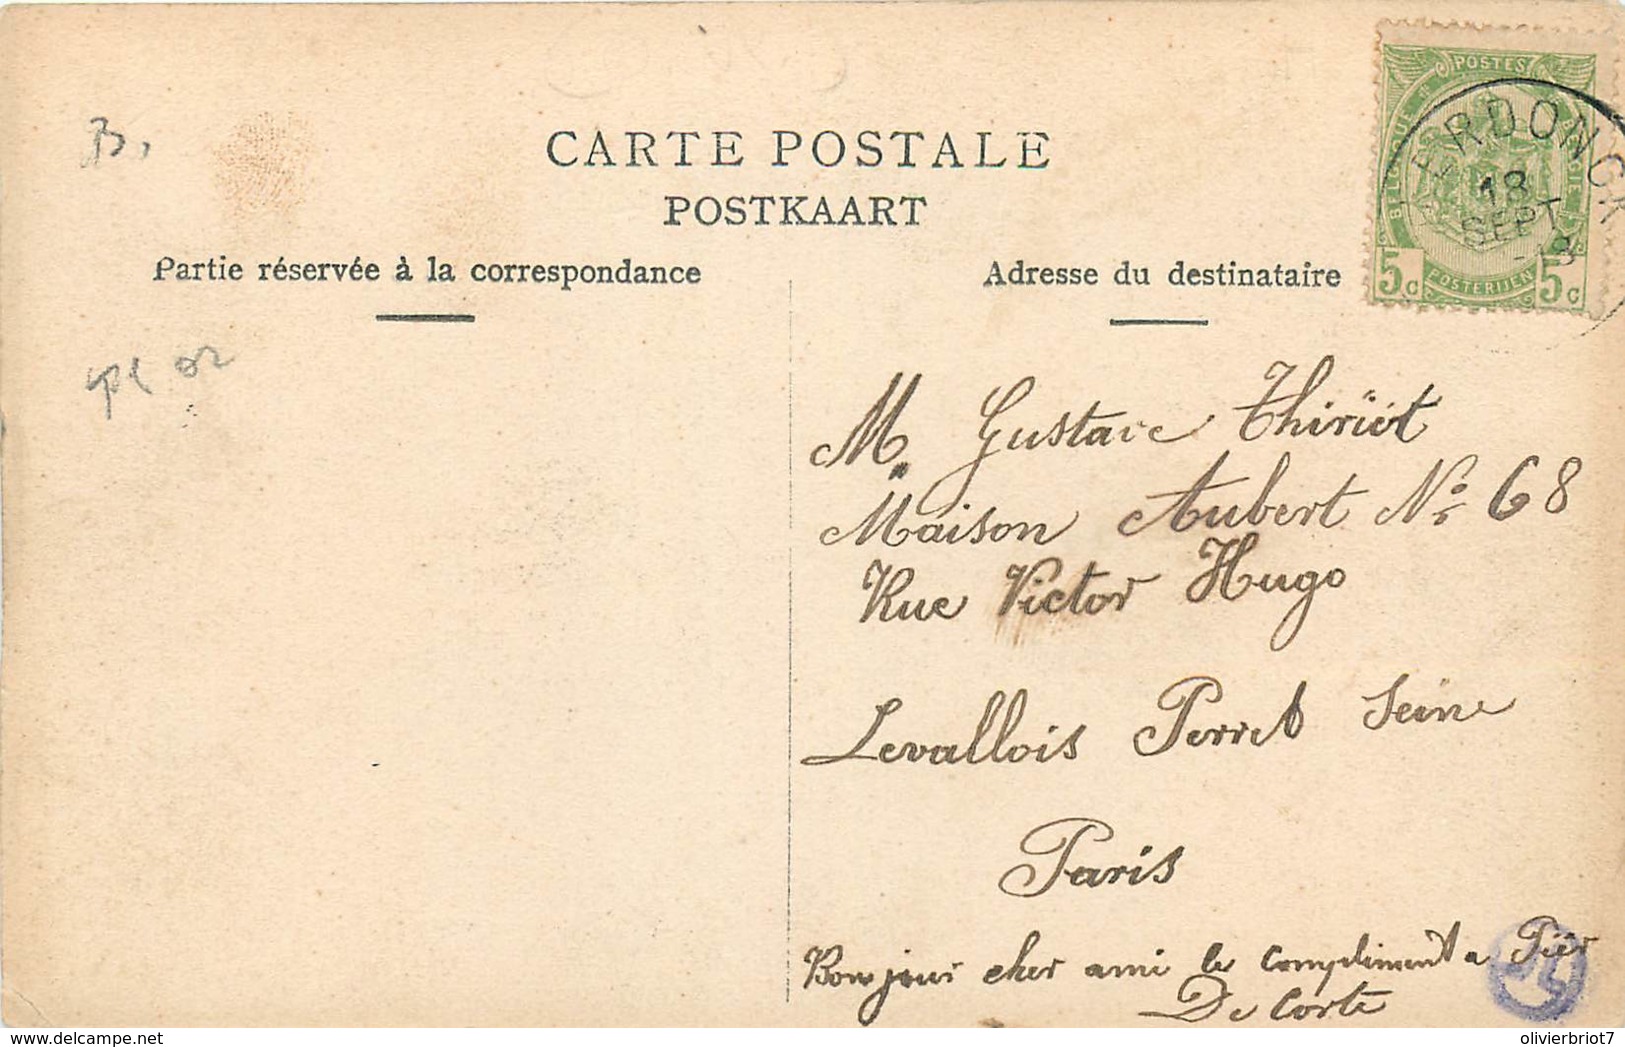 B.
CARTE POSTALE
POSTKAART
Partie réservée à la correspondance
Adresse du destinataire
POSTES
BELGIQUE
BELGIË
5c POSTERIJEN 5c
ERDONCK
18
SEPT
M. Gustave Thiriët
Maison Aubert No 68
Rue Victor Hugo
Levallois Perret Seine
Paris
Bonjour cher ami le Compliment a Piër
De Corte
delcampe.net
olivierbriot7